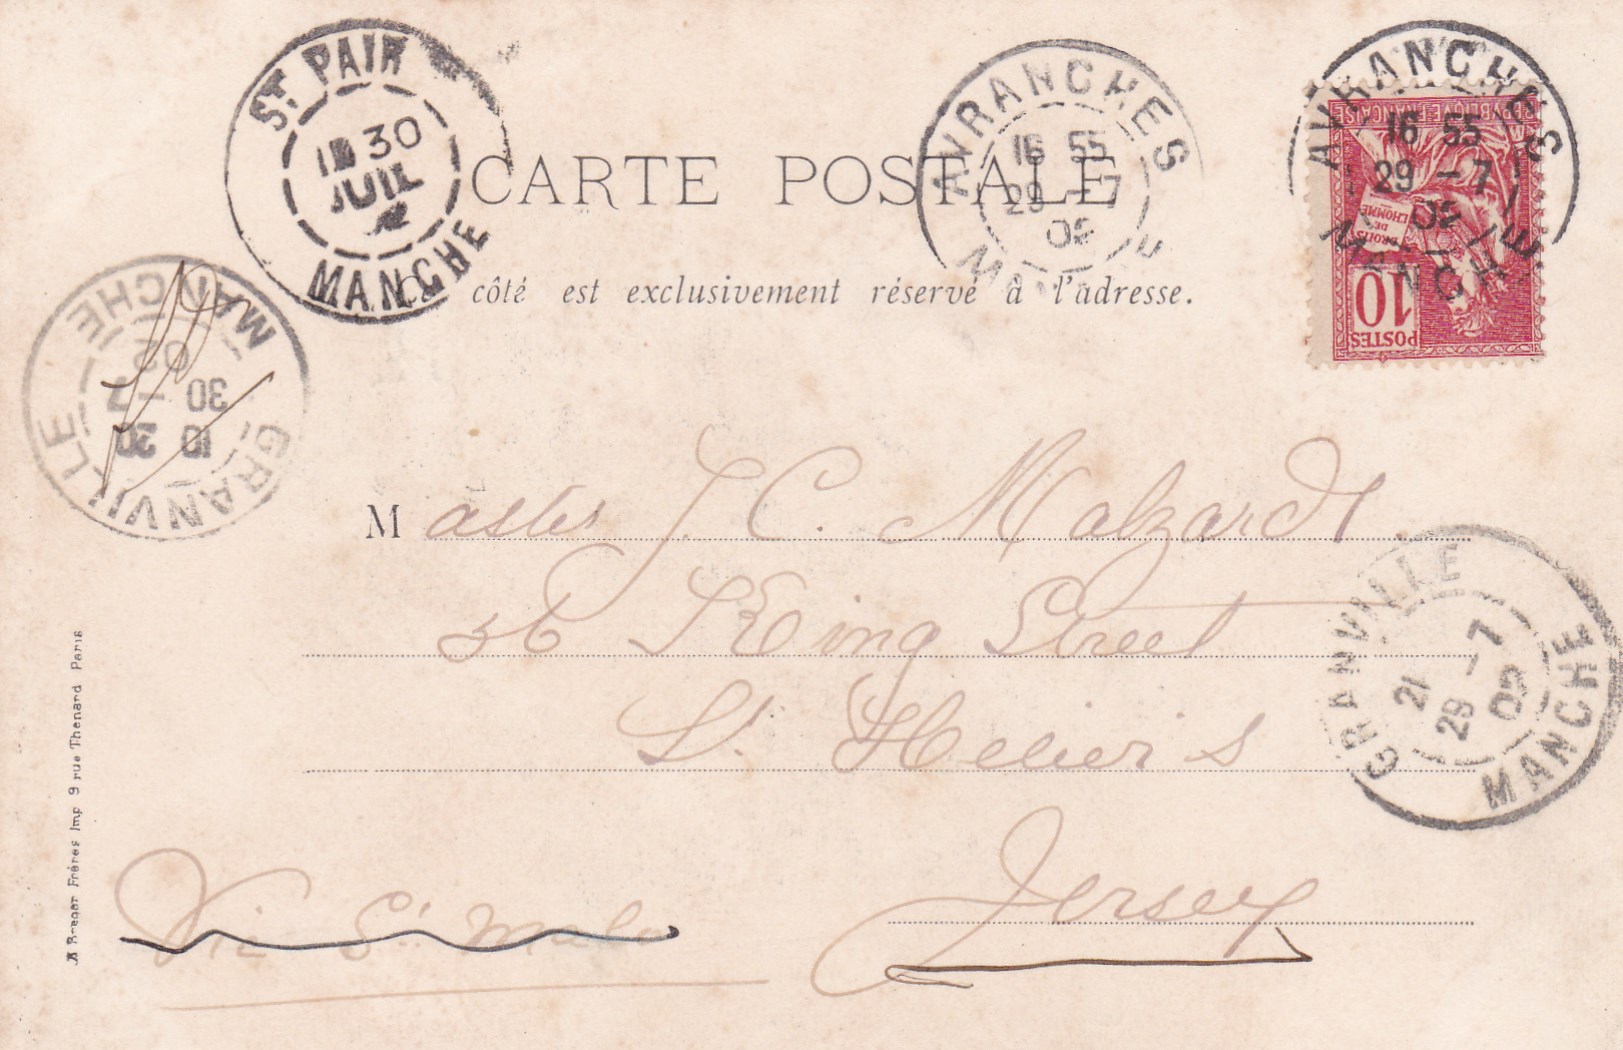 ST PAIR
30
JUIL
MANCHE
AVRANCHES
16 55
29 -7
02
AVRANCHES
16 55
29 -7
02
MANCHE
RÉPUBLIQUE FRANÇAISE
DROITS
DE
L'HOMME
10
POSTES
CARTE POSTALE
côté est exclusivement réservé à l'adresse.
GRANVILLE
10 20
30 -7
02
MANCHE
Master J. C. Malzard.
36 King Street
St Heliers
Jersey
Via St Malo
GRANVILLE
21
29 -7
02
MANCHE
Frères Imp 9 rue Thénard Paris